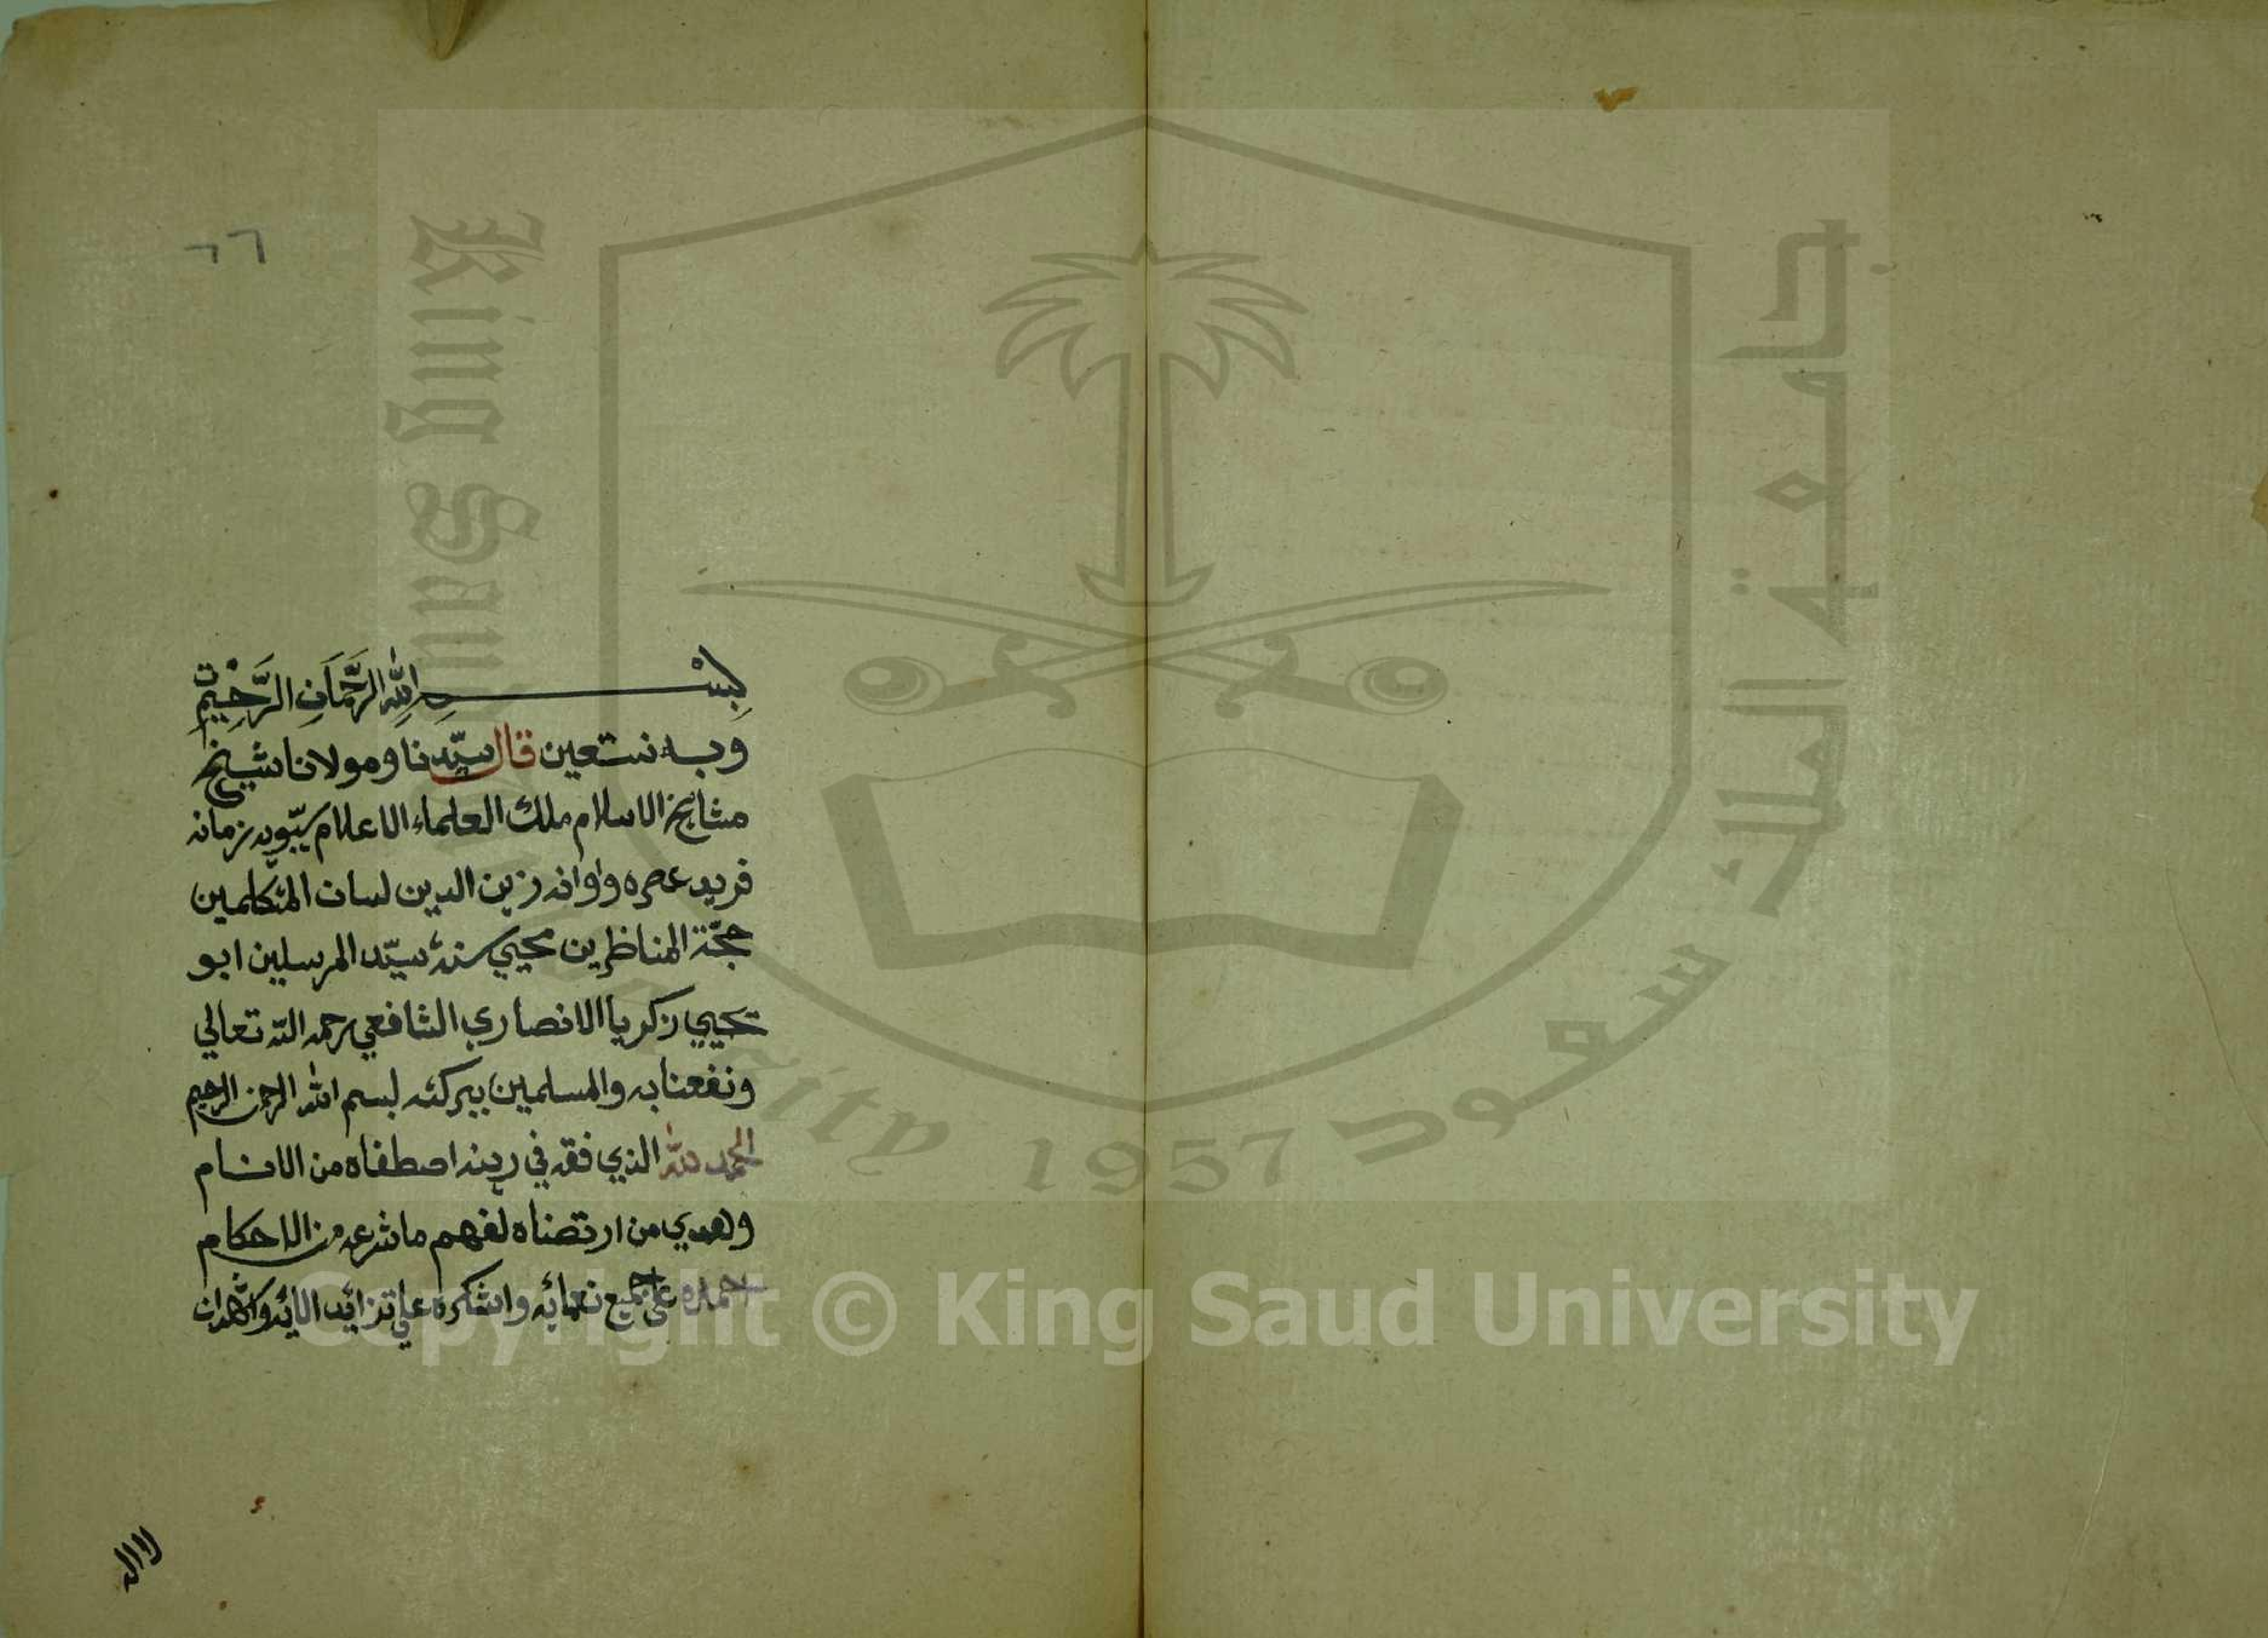 ٦٦
بِسْمِ اللّٰهِ الرَّحْمَانِ الرَّحِيْمِ
وبه نستعين قال سيّدنا ومولانا شيخ
مشايخ الاسلام ملك العلماء الاعلام سيبّويه زمانه
فريد عصره واوانه زين الدين لسان المتكلمين
حجّة المناظرين محيي سنة سيّد المرسلين ابو
يحيي زكريا الانصاري الشافعي رحمه الله تعالي
ونفعنا به والمسلمين ببركته بسم الله الرحمن الرحيم
الحمد لله الذي فقه في دينه اصطفاه من الانام
وهدي من ارتضاه لفهم ما شرعه من الاحكام
احمده على جميع نعمائه واشكره علي تزائد الائه واشهد ان
لا اله
King Saud University
1957
جامعة الملك سعود
Copyright © King Saud University